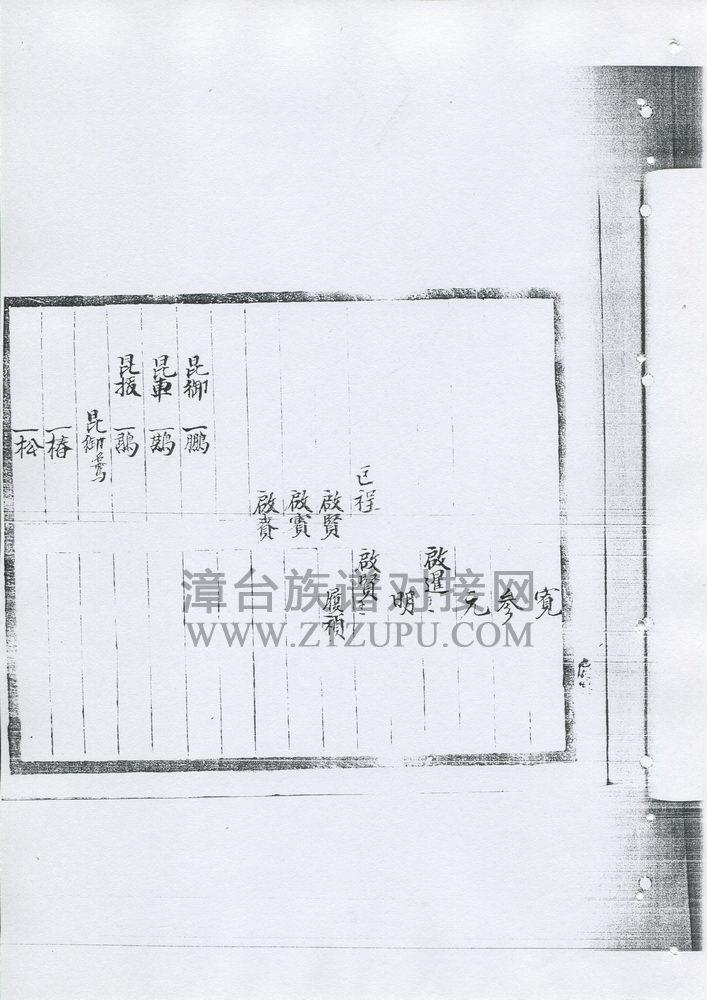 寬
參
元
啟暹
明
啟賢
履禎
啟賢
啟賓
啟賚
昆御 一鵬
昆車 一鶚
昆振 一鶚
昆御
一椿
一松
漳台族谱对接网
WWW.ZTZUPU.COM